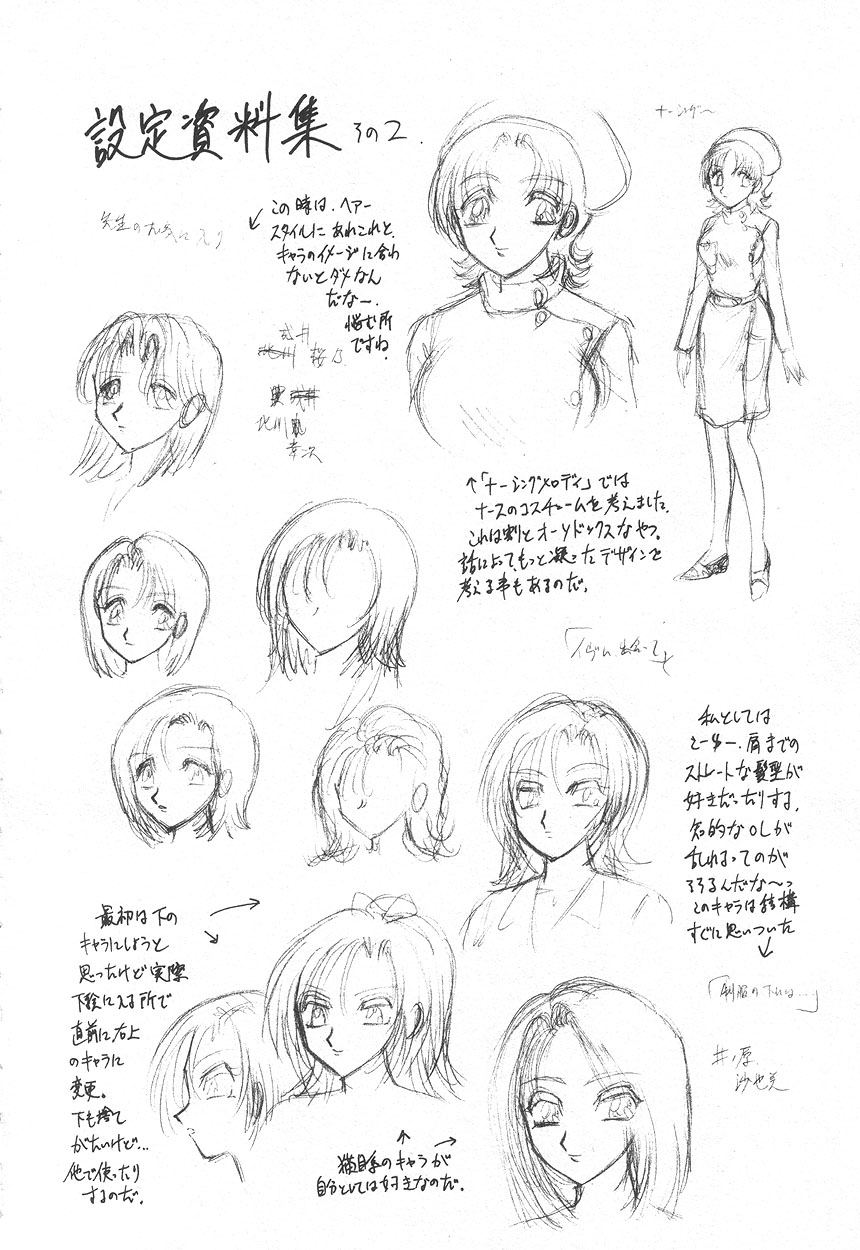 設定資料集 その2.
ナーシング〜
先生のお気に入り
この時は、ヘアー
スタイルにあれこれと、
キャラのイメージに合わ
ないとダメなん
だなー.
悩む所
ですね.
北川
幸次
↑「ナーシングメロディ」では
ナースのコスチュームを考えました.
これは割とオーソドックスなやつ。
話によって、もっと凝ったデザインで
考える事もあるのだ.
私としては
肩までの
ストレートな髪型が
好きだったりする.
知的なOLが
乱れまくってのが
そそるんだな〜っ
このキャラは結構
すぐに思いついた
「制服の下には…」
井ノ原
沙也
最初は下の
キャラにしようと
思ったけど実際
下絵に入る所で
直前に右上
のキャラに
変更。
下も捨て
がたいけど…
他で使ったり
するのだ.
猫目系のキャラが
自分としては好きなのだ.